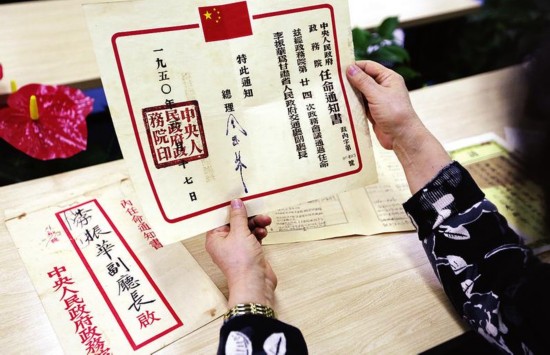 中央人民政府
政務院
任命通知書
政內字第
號
茲經政務院第廿四次政務會議通過任命
李振華爲甘肅省人民政府交通廳副廳長
特此通知
總理 周恩來
一九五〇年
月
十七日
中央人
民政府政
務院印
內任命通知書
李振華副廳長啟
中央人民政府政務院